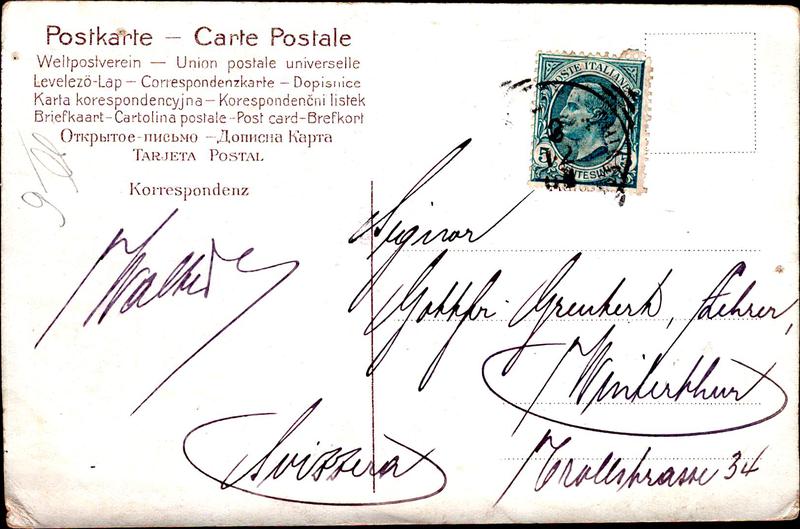 Postkarte – Carte Postale
Weltpostverein – Union postale universelle
Levelezö-Lap – Correspondenzkarte – Dopisnice
Karta korespondencyjna – Korespondenční listek
Briefkaart – Cartolina postale – Post card – Brefkort
Открытое-письмо – Дописна Карта
Tarjeta Postal
Korrespondenz
POSTE ITALIANE
5
CENTESIMI
Signor
Gottfr. Lehrer,
Winterthur
Trollstrasse 34
Svizzera
Walter